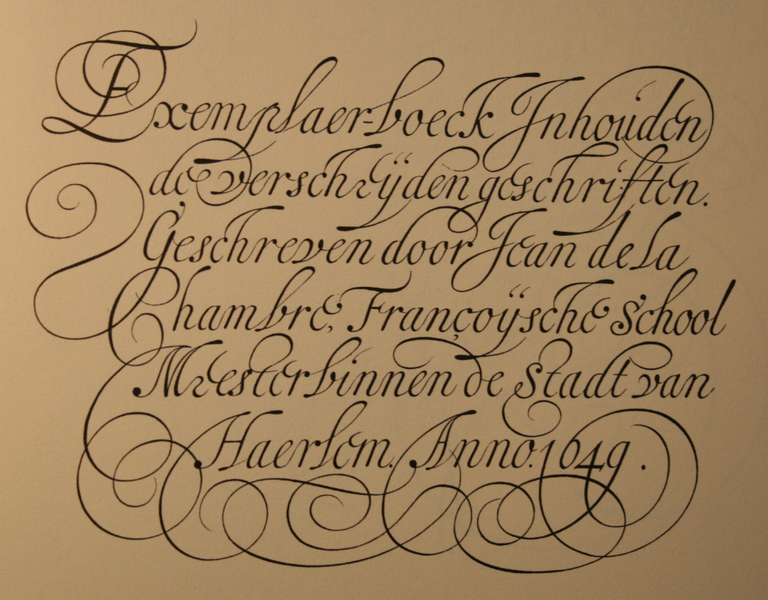 Exemplaer-boeck Inhouden
de verscheÿden geschriften.
Geschreven door Jean de la
Chambre, Françoÿsche School
Meester binnen de Stadt van
Haerlem. Anno. 1649.